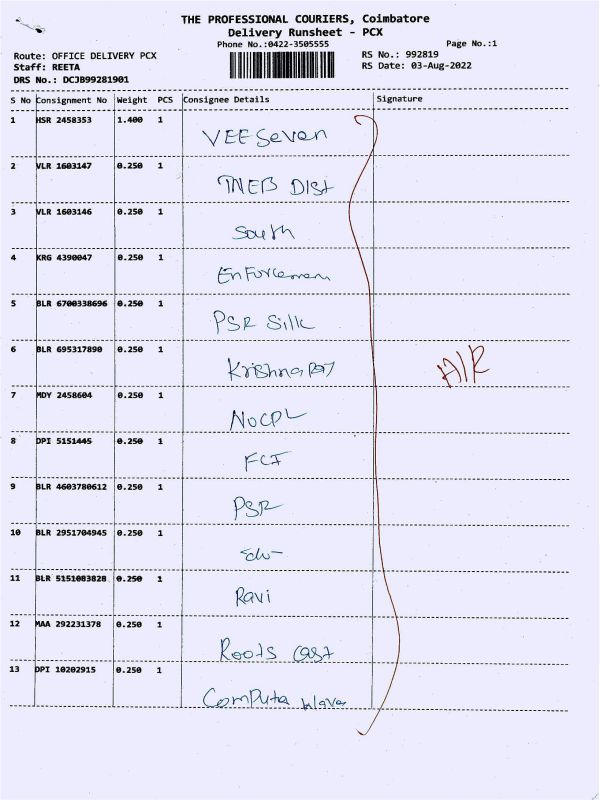 THE PROFESSIONAL COURIERS, Coimbatore
Delivery Runsheet - PCX
Phone No.:0422-3505555
Page No.:1
Route: OFFICE DELIVERY PCX
RS No.: 992819
Staff: REETA
RS Date: 03-Aug-2022
DRS No.: DCJB99281901
S No Consignment No Weight PCS Consignee Details Signature
1 HSR 2458353 1.400 1
VEESeven
2 VLR 1603147 0.250 1
TNEB DIST
3 VLR 1603146 0.250 1
South
4 KRG 4390047 0.250 1
5 BLR 6700338696 0.250 1
PSR Silk
6 BLR 695317890 0.250 1
Krishna
A/R
7 MDY 2458604 0.250 1
NOCPL
8 DPI 5151445 0.250 1
FCI
9 BLR 4603780612 0.250 1
PSR
10 BLR 2951704945 0.250 1
11 BLR 5151083828 0.250 1
Ravi
12 MAA 292231378 0.250 1
Roots Cast
13 DPI 10202915 0.250 1